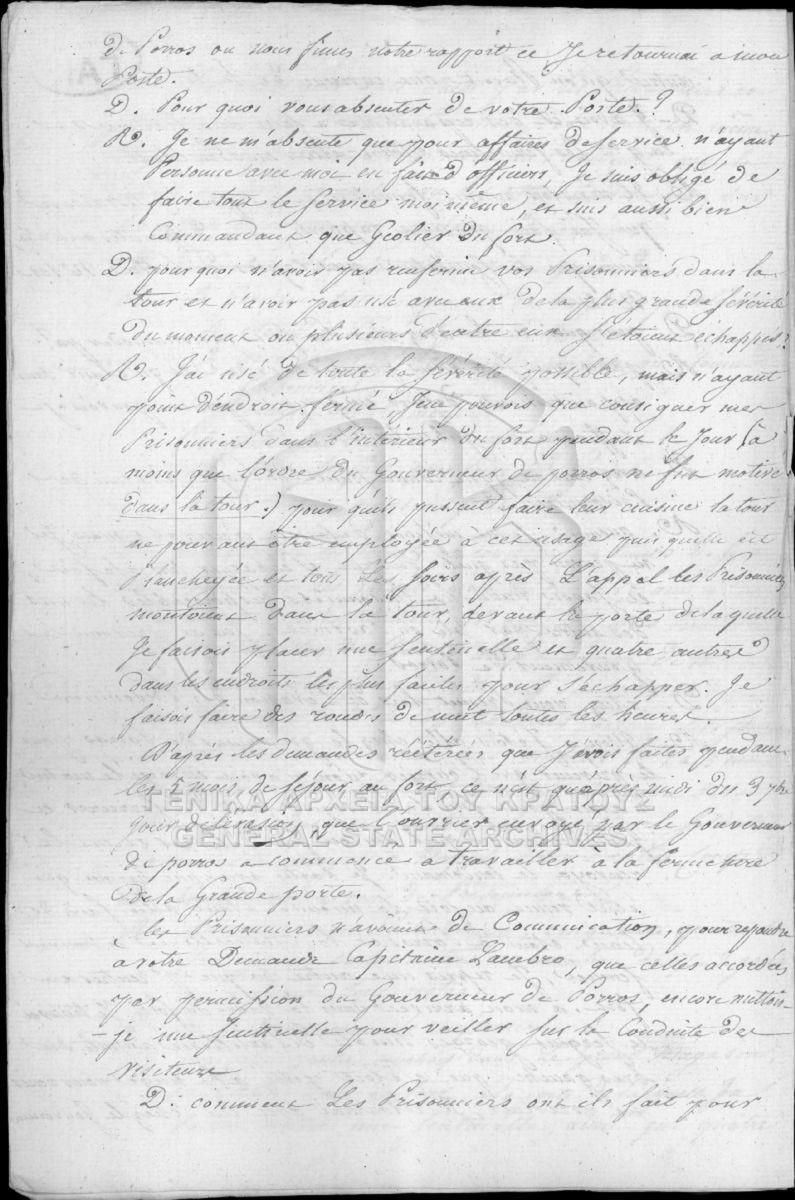 de Porros ou nous fimes notre rapport ce Je retournai a mon
Poste.
D. Pour quoi vous absenter de votre Poste?
R. Je ne m'absente que pour affaires de service. n'ayant
Personne avec moi en fait d'officiers, Je suis obligé de
faire tout le service moi même, et suis aussi bien
Commandant que Geolier du fort.
D. pourquoi n'avoir pas renfermé vos Prisonniers dans la
tour et n'avoir pas usé avec eux de la plus grande sévérité
du moment ou plusieurs d'entre eux s'etoient échappés?
R. J'ai usé de toute la sévérité possible, mais n'ayant
point d'endroit fermé, Je ne pouvois que consigner mes
Prisonniers dans l'intérieur du fort pendant le Jour (a
moins que l'ordre du Gouverneur de porros ne fut motivé
dans la tour.) pour qu'ils pussent faire leur cuisine la tour
ne pouvant être employée à cet usage puis quelle est
Plancheyée et tous les soirs après L'appel les Prisonniers
montoient dans la tour, devant la porte de laquelle
Je faisois placer une sentinelle et quatre autres
dans les endroits les plus faciles pour s'échapper. Je
faisois faire des rondes de nuit toutes les heures.
D'après les demandes réitérées que J'avois faites pendant
les 2 mois de séjour au fort ce n'est qu'après midi du 3 7bre
jour de l'évasion, que l'ouvrier envoyé par le Gouverneur
de porros a commencé a travailler à la fermeture
de la Grande porte.
les Prisonniers n'avoient de Communication, pour repondre
à votre Demande Capitaine Lambro, que celles accordées
par permission du Gouverneur de Porros, encore mettois-
-je une sentinelle pour veiller sur la Conduite des
visiteurs
D. comment Les Prisonniers ont ils fait pour
ΓΕΝΙΚΑ ΑΡΧΕΙΑ ΤΟΥ ΚΡΑΤΟΥΣ
GENERAL STATE ARCHIVES